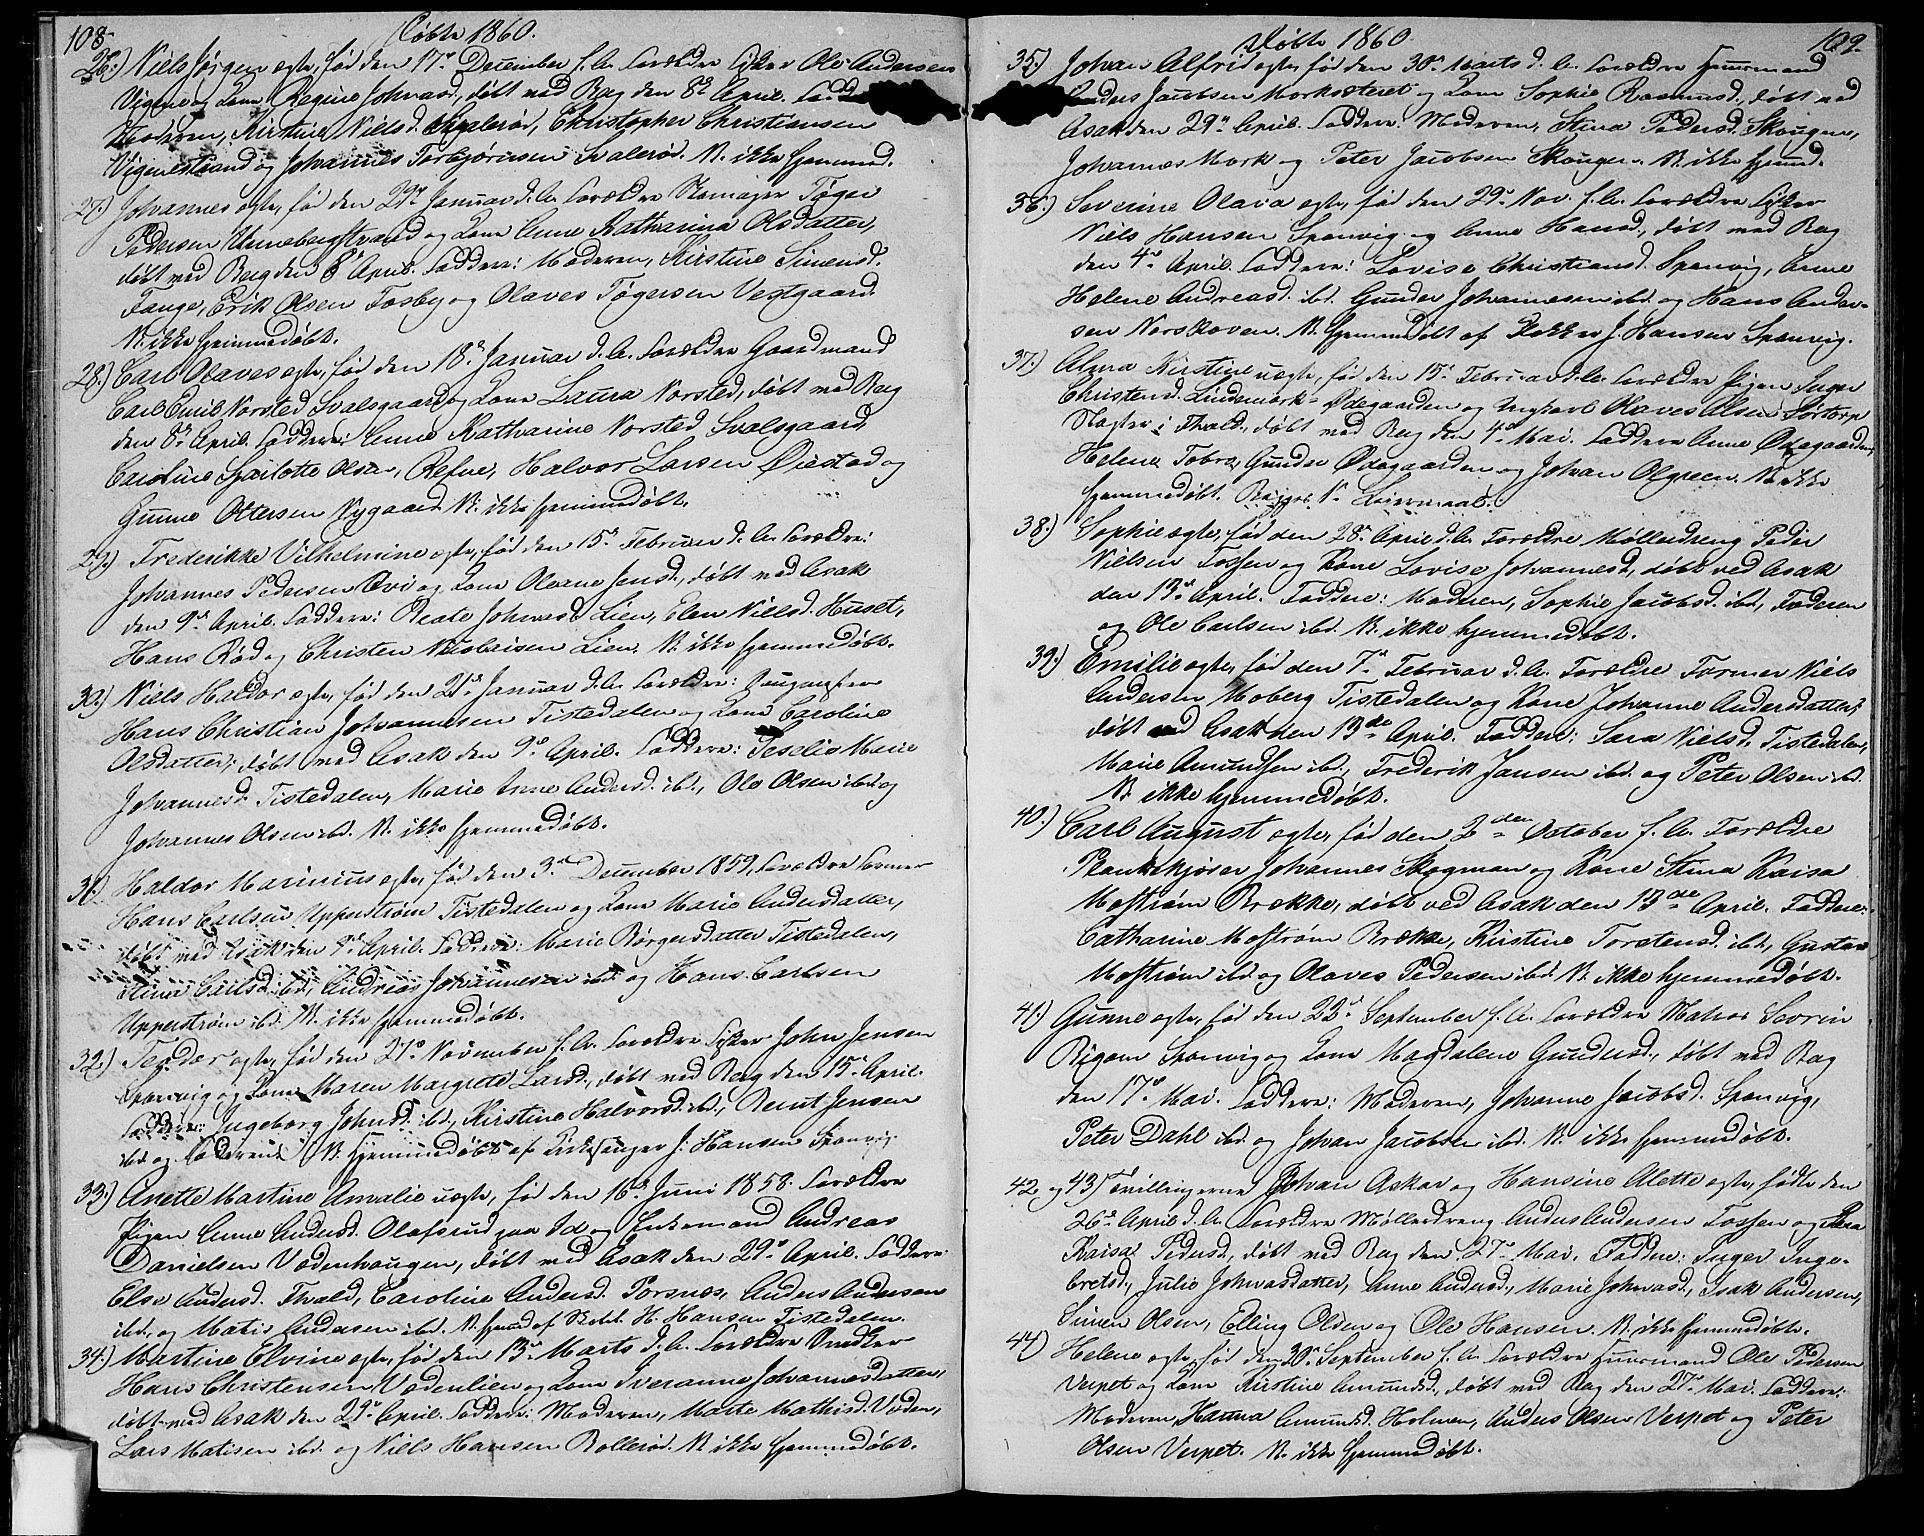 108
Døbte 1860.
26.) Niels Jørgen ægte, fød den 17de December f. A. Forældre Fisker Ole Andersen
Vigene og Kone Regine Johnsd., døbt ved Berg den 8de April. Fadd
Moderen, Kirstine Nielsd. Svalerød, Christopher Christiansen
Vigenestrand og Johannes Torbjørnsen Svalerød. N. ikke hjemmed.
27.) Johannes ægte, fød den 29de Januar d. A. Forældre Skomager Tøger
Pedersen Unnebergstrand og Kone Anne Katharina Olsdatter,
døbt ved Berg den 8de April. Faddere: Moderen, Kirstine Simensd.
Fange, Erik Olsen Fosby og Olaves Tøgersen Vestgaard.
N. ikke hjemmedøbt.
28.) Carl Olaves ægte, fød den 18de Januar d. A. Forældre Gaardmand
Carl Emil Norsted Svalsgaard og Kone Laura Norsted, døbt ved Berg
den 8de April. Faddere: Anne Katharine Norsted Svalsgaard,
Caroline Sharlotte Olsen, Refne, Halvor Larsen Øiestad og
Gunne Ottersen Nygaard. N. ikke hjemmedøbt.
29.) Frederikke Vilhelmine ægte, fød den 15de Februar d. A. Forældre:
Johannes Pedersen Evi og Kone Oleane Jensd., døbt ved Asak
den 9de April. Faddere: Beate Johnsd. Lien, Elen Nielsd. Huset,
Hans Rød og Christen Nicolaisen Lien. N. ikke hjemmedøbt.
30.) Niels Haldor ægte, fød den 21de Januar d. A. Forældre:
Hans Christian Johannesen Tistedalen og Kone Caroline
Olsdatter, døbt ved Asak den 9de April. Faddere: Joselie Marie
Johannesd. Tistedalen, Marie Anne Andersd. ibd., Ole Olsen ibd. og
Johannes Olsen ibd. N. ikke hjemmedøbt.
31.) Haldor Marinius ægte, fød den 3de December 1859, Forældre Former
Hans Carlsen Upperstrøm Tistedalen og Kone Marie Andersdatter,
døbt ved Asak den 9de April. Faddere: Marie Børgersdatter Tistedalen,
Stina Carlsd. ibd., Andreas Johannesen ibd. og Hans Carlsen
Upperstrøm ibd. N. ikke hjemmedøbt.
32.) Teodor ægte, fød den 27de November f. A. Forældre Fisker John Jensen
Sponvig og Kone Maren Margrete Larsd., døbt ved Berg den 15de April.
Faddere: Ingeborg Johnsd. ibd., Kirstine Halvorsd. ibd., Bernt Jensen
ibd. og Faderen. N. hjemmedøbt af Kirkesanger J. Hansen Sponvig.
33.) Anette Martine Amalie uægte, fød den 16de Juni 1858. Forældre
Pigen Anne Andersd. Olafsrud paa Id og Enkemand Andreas
Danielsen Vedenhaugen, døbt ved Asak den 29de April. Faddere:
Else Andersd. Fhald, Caroline Andersd. Porsnes, Anders Andersen
ibd., og Matis Andersen ibd. N. hjemd. af Skoleh. H. Hansen Tistedalen.
34.) Martine Elvine ægte, fød den 13de Marts d. A. Forældre
Hans Christensen Vedenlien og Kone Iveranne Johannesdatter,
døbt ved Asak den 29de April. Faddere: Moderen, Marte Mathisd. Veden,
Lars Matisen ibd. og Niels Hansen Bollerød. N. ikke hjemmedøbt.
Døbte 1860.
109
35.) Johan Alfrid ægte, fød den 30te Marts d. A. Forældre Huusmand
Anders Jacobsen Morksæteret og Kone Sophie Rasmusd., døbt ved
Asak den 29de April. Faddere: Moderen, Stina Pedersd. Skougen,
Johannes Mork og Peter Jacobsen Skougen. N. ikke hjemd.
36.) Severine Olava ægte, fød den 29de Nov. f. A. Forældre Fisker
Niels Hansen Sponvig og Anne Hansd., døbt ved Berg
den 4de April. Faddere: Lovise Christiansd. Sponvig, Anne
Helene Andreasd. ibd. Gunder Johannesen ibd. og Hans Ander-
sen Norskoven. N. hjemmedøbt af Klokker J. Hansen Sponvig.
37.) Alma Kirstine uægte, fød den 15de Februar d. A. Forældre Pigen Inger
Christensd. Lindemark Ødegaarden og Ungkarl Olaves Olsen Sortorp
Slagter i Fhald., døbt ved Berg den 4de Mai. Faddere Anne Ødegaarden,
Helene Tobro, Gunder Ødegaarden og Johan Olgreen. N. ikke
hjemmedøbt. Begges 1ste Leiermaal.
38.) Sophie ægte, fød den 28de April d. A. Forældre Mølledreng Peder
Nielsen Fossen og Kone Lovise Johannesd., døbt ved Asak
den 13de April. Faddere: Moderen, Sophie Jacobsd. ibd., Faderen
og Ole Carlsen ibd. N. ikke hjemmedøbt.
39.) Emilie ægte, fød den 7de Februar d. A. Forældre Former Niels
Andersen Moberg Tistedalen og Kone Johanne Andersdatter,
døbt ved Asak den 13de April. Faddere: Sara Nielsd. Tistedalen,
Marie Amundsen ibd., Frederik Jansen ibd. og Peter Olsen ibd.
N. ikke hjemmedøbt.
40.) Carl August ægte, fød den 2den October f. A. Forældre
Plankekjører Johannes Skogman og Kone Stina Kaisa
Mostrøm Brække, døbt ved Asak den 13de April. Faddere:
Catharine Mostrøm Brække, Kristine Torstensd. ibd., Gustav
Mostrøm ibd. og Olaves Pedersen ibd. N. ikke hjemmedøbt.
41.) Gunne ægte, fød den 22de September f. A. Forældre Matros Sevrin
Rigom Sponvig og Kone Magdalene Gundersd., døbt ved Berg
den 17de Mai. Faddere: Moderen, Johanne Jacobsd. Sponvig,
Peter Dahl ibd. og Johan Jacobsen ibd. N. ikke hjemmedøbt.
42 og 43) Tvillingerne Johan Askar og Hansine Alette ægte, fødte den
26de April d. A. Forældre Mølledreng Anders Andersen Fossen og Kone
Kaisa Pedersd., døbt ved Berg den 27de Mai. Faddere: Inger Inge-
bretsd., Julie Johnasdatter, Anne Andersd., Marie Johnasd., Isak Andersen,
Simen Olsen, Elling Olsen og Ole Hansen. N. ikke hjemmedøbte.
44) Helene ægte, fød den 30te September f. A. Forældre Huusmand Ole Pedersen
Verpet og Kone Kirstine Amundsd., døbt ved Berg den 27de Mai. Faddere:
Moderen, Hanna Amundsd. Holmen, Anders Olsen Verpet og Peter
Olsen Verpet. N. ikke hjemmedøbt.